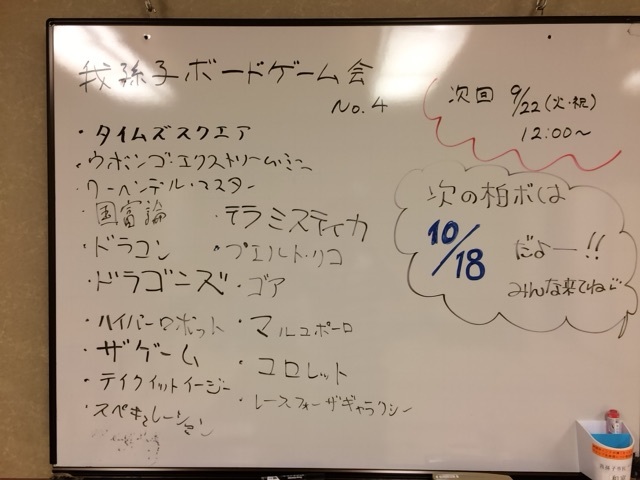 我孫子ボードゲーム会
No.4
・タイムズスクエア
・ウボンゴ・エクストリーム・ミニ
・ワーヘンデル・マスター
・国富論
・ドラコン
・ドラゴニズ
・ハイパーロボット
・ザゲーム
・テイクイットイージー
・スペキュレーション
・テラミスティカ
・プエルト・リコ
・ゴア
・マルコポーロ
・コロレット
・レースフォーザギャラクシー
次回 9/22(火・祝)
12:00〜
次の柏ボは
10/18 だよー!!
みんな来てね